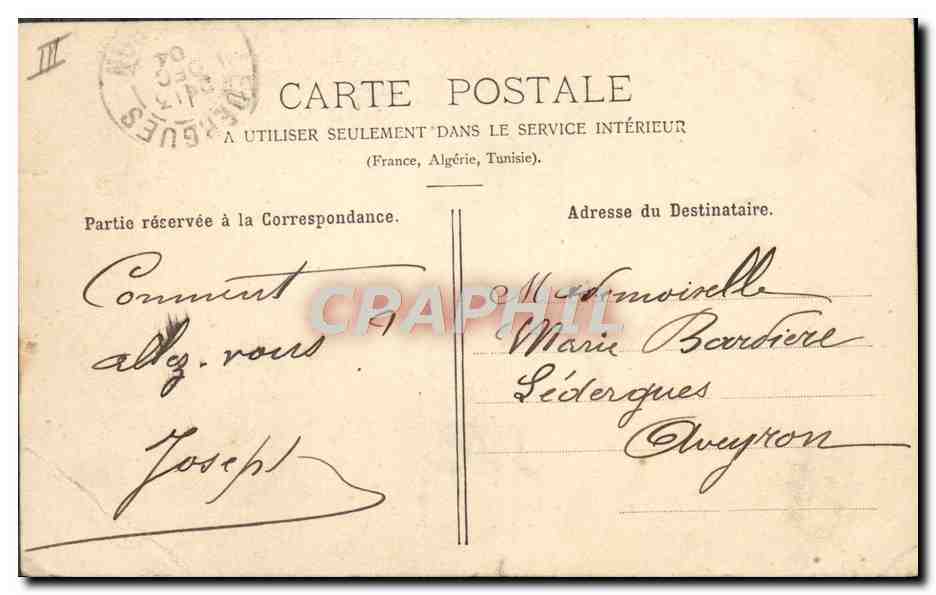 III
LEDERGUES
13
DEC
04
CARTE POSTALE
A UTILISER SEULEMENT DANS LE SERVICE INTÉRIEUR
(France, Algérie, Tunisie).
Partie réservée à la Correspondance.
Comment
allez-vous ?
Joseph
Adresse du Destinataire.
Mademoiselle
Marie Bardiere
Lédergues
Aveyron
CRAPHIL